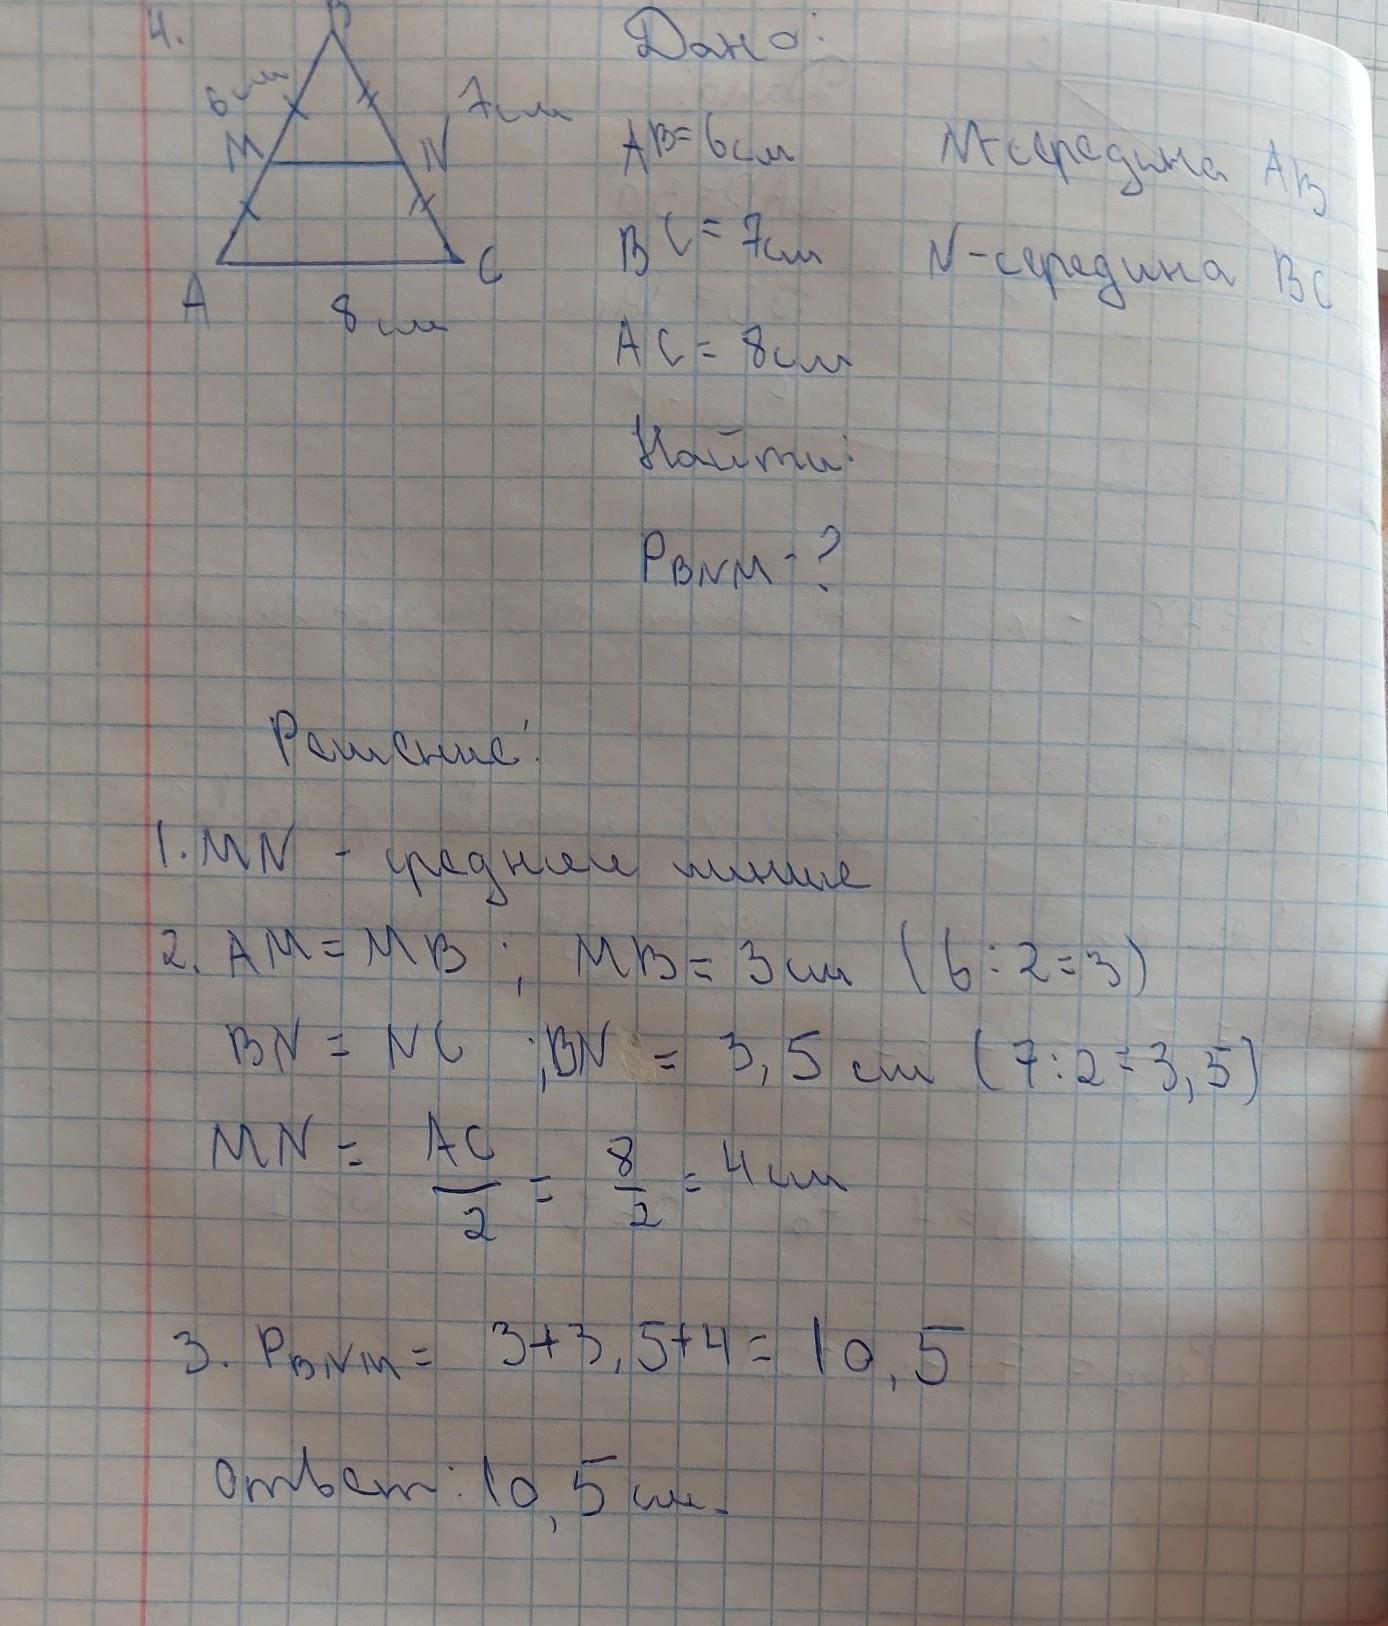 4.
B
6 см
7см
M
N
A
C
8 см
Дано:
AB=6см
M-середина AB
BC=7см
N-середина BC
AC=8см
Найти:
PBNM-?
Решение:
1. MN - средняя линия
2. AM=MB ; MB=3см (6:2=3)
BN=NC ; BN=3,5 см (7:2=3,5)
MN = AC/2 = 8/2 = 4см
3. PBNM= 3+3,5+4=10,5
Ответ: 10,5 см.